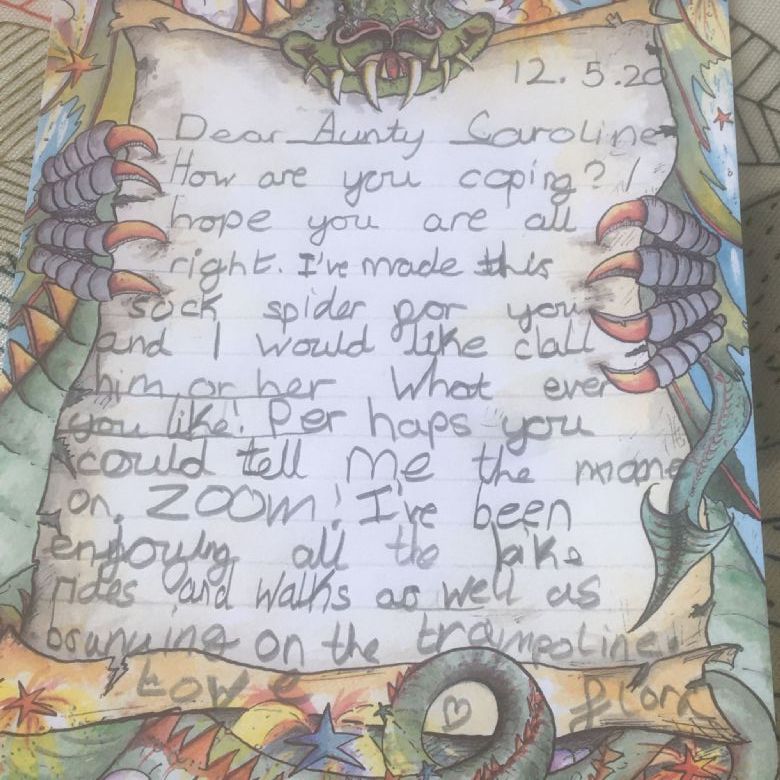 12.5.20
Dear Aunty Caroline
How are you coping? I
hope you are all
right. I've made this
sock spider for you
and I would like clall
him or her What ever
you like! Per haps you
could tell Me the mame
on ZOOM! I've been
enjoying all the bike
rides and walks as well as
on the trampoline.
Love Flora